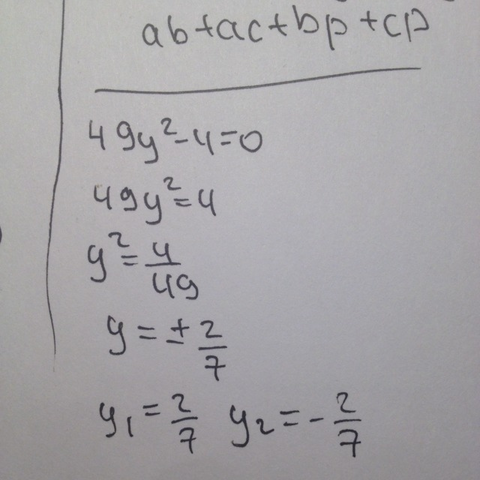 ab+ac+bp+cp
49y²-4=0
49y²=4
y²=4/49
y=±2/7
y₁=2/7 y₂=-2/7